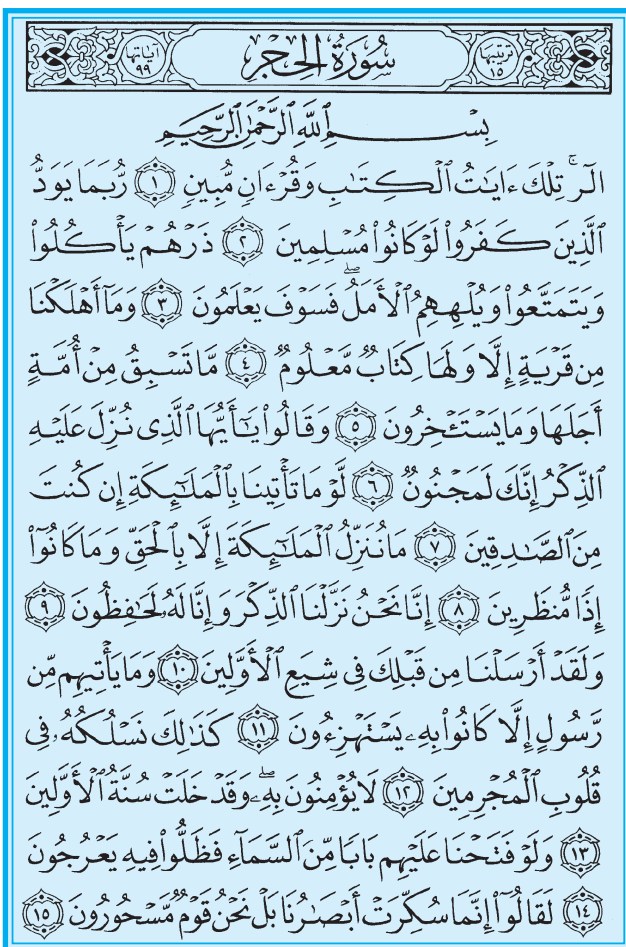 ترتيبها ١٥ سُورَةُ الحِجر آياتها ٩٩
بِسْمِ ٱللَّهِ ٱلرَّحْمَٰنِ ٱلرَّحِيمِ
الٓرۚ تِلْكَ ءَايَٰتُ ٱلْكِتَٰبِ وَقُرْءَانٍ مُّبِينٍ ١ رُّبَمَا يَوَدُّ
ٱلَّذِينَ كَفَرُوا۟ لَوْ كَانُوا۟ مُسْلِمِينَ ٢ ذَرْهُمْ يَأْكُلُوا۟
وَيَتَمَتَّعُوا۟ وَيُلْهِهِمُ ٱلْأَمَلُۖ فَسَوْفَ يَعْلَمُونَ ٣ وَمَآ أَهْلَكْنَا
مِن قَرْيَةٍ إِلَّا وَلَهَا كِتَابٌ مَّعْلُومٌ ٤ مَّا تَسْبِقُ مِنْ أُمَّةٍ
أَجَلَهَا وَمَا يَسْتَـْٔخِرُونَ ٥ وَقَالُوا۟ يَٰٓأَيُّهَا ٱلَّذِى نُزِّلَ عَلَيْهِ
ٱلذِّكْرُ إِنَّكَ لَمَجْنُونٌ ٦ لَّوْ مَا تَأْتِينَا بِٱلْمَلَٰٓئِكَةِ إِن كُنتَ
مِنَ ٱلصَّٰدِقِينَ ٧ مَا نُنَزِّلُ ٱلْمَلَٰٓئِكَةَ إِلَّا بِٱلْحَقِّ وَمَا كَانُوٓا۟
إِذًا مُّنظَرِينَ ٨ إِنَّا نَحْنُ نَزَّلْنَا ٱلذِّكْرَ وَإِنَّا لَهُۥ لَحَٰفِظُونَ ٩
وَلَقَدْ أَرْسَلْنَا مِن قَبْلِكَ فِى شِيَعِ ٱلْأَوَّلِينَ ١٠ وَمَا يَأْتِيهِم مِّن
رَّسُولٍ إِلَّا كَانُوا۟ بِهِۦ يَسْتَهْزِءُونَ ١١ كَذَٰلِكَ نَسْلُكُهُۥ فِى
قُلُوبِ ٱلْمُجْرِمِينَ ١٢ لَا يُؤْمِنُونَ بِهِۦۖ وَقَدْ خَلَتْ سُنَّةُ ٱلْأَوَّلِينَ
١٣ وَلَوْ فَتَحْنَا عَلَيْهِم بَابًا مِّنَ ٱلسَّمَآءِ فَظَلُّوا۟ فِيهِ يَعْرُجُونَ
١٤ لَقَالُوٓا۟ إِنَّمَا سُكِّرَتْ أَبْصَٰرُنَا بَلْ نَحْنُ قَوْمٌ مَّسْحُورُونَ ١٥